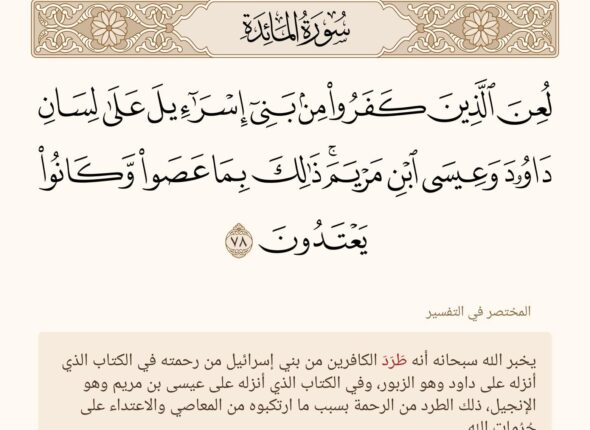 سُورَةُ المَائدَةِ
لُعِنَ ٱلَّذِينَ كَفَرُواْ مِنۢ بَنِيٓ إِسۡرَٰٓءِيلَ عَلَىٰ لِسَانِ
دَاوُۥدَ وَعِيسَى ٱبۡنِ مَرۡيَمَۚ ذَٰلِكَ بِمَا عَصَواْ وَّكَانُواْ
يَعۡتَدُونَ ٧٨
المختصر في التفسير
يخبر الله سبحانه أنه طَرَدَ الكافرين من بني إسرائيل من رحمته في الكتاب الذي
أنزله على داود وهو الزبور، وفي الكتاب الذي أنزله على عيسى بن مريم وهو
الإنجيل، ذلك الطرد من الرحمة بسبب ما ارتكبوه من المعاصي والاعتداء على
حُرُمات الله